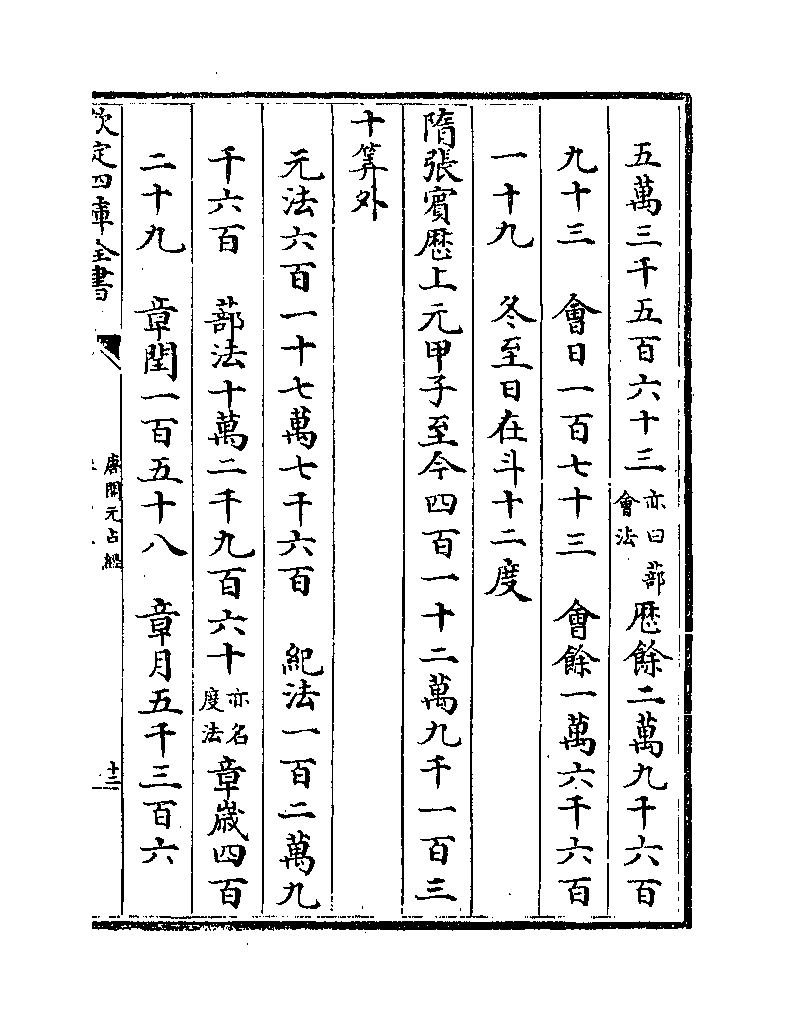 五萬三千五百六十三亦曰蔀會法歴餘二萬九千六百
九十三　會日一百七十三　會餘一萬六千六百
一十九　冬至日在斗十二度
隋張賔歴上元甲子至今四百一十二萬九千一百三
十筭外
元法六百一十七萬七千六百　紀法一百二萬九
千六百　蔀法十萬二千九百六十亦名度法章嵗四百
二十九　章閏一百五十八　章月五千三百六
欽定四庫全書
唐開元占經
十三